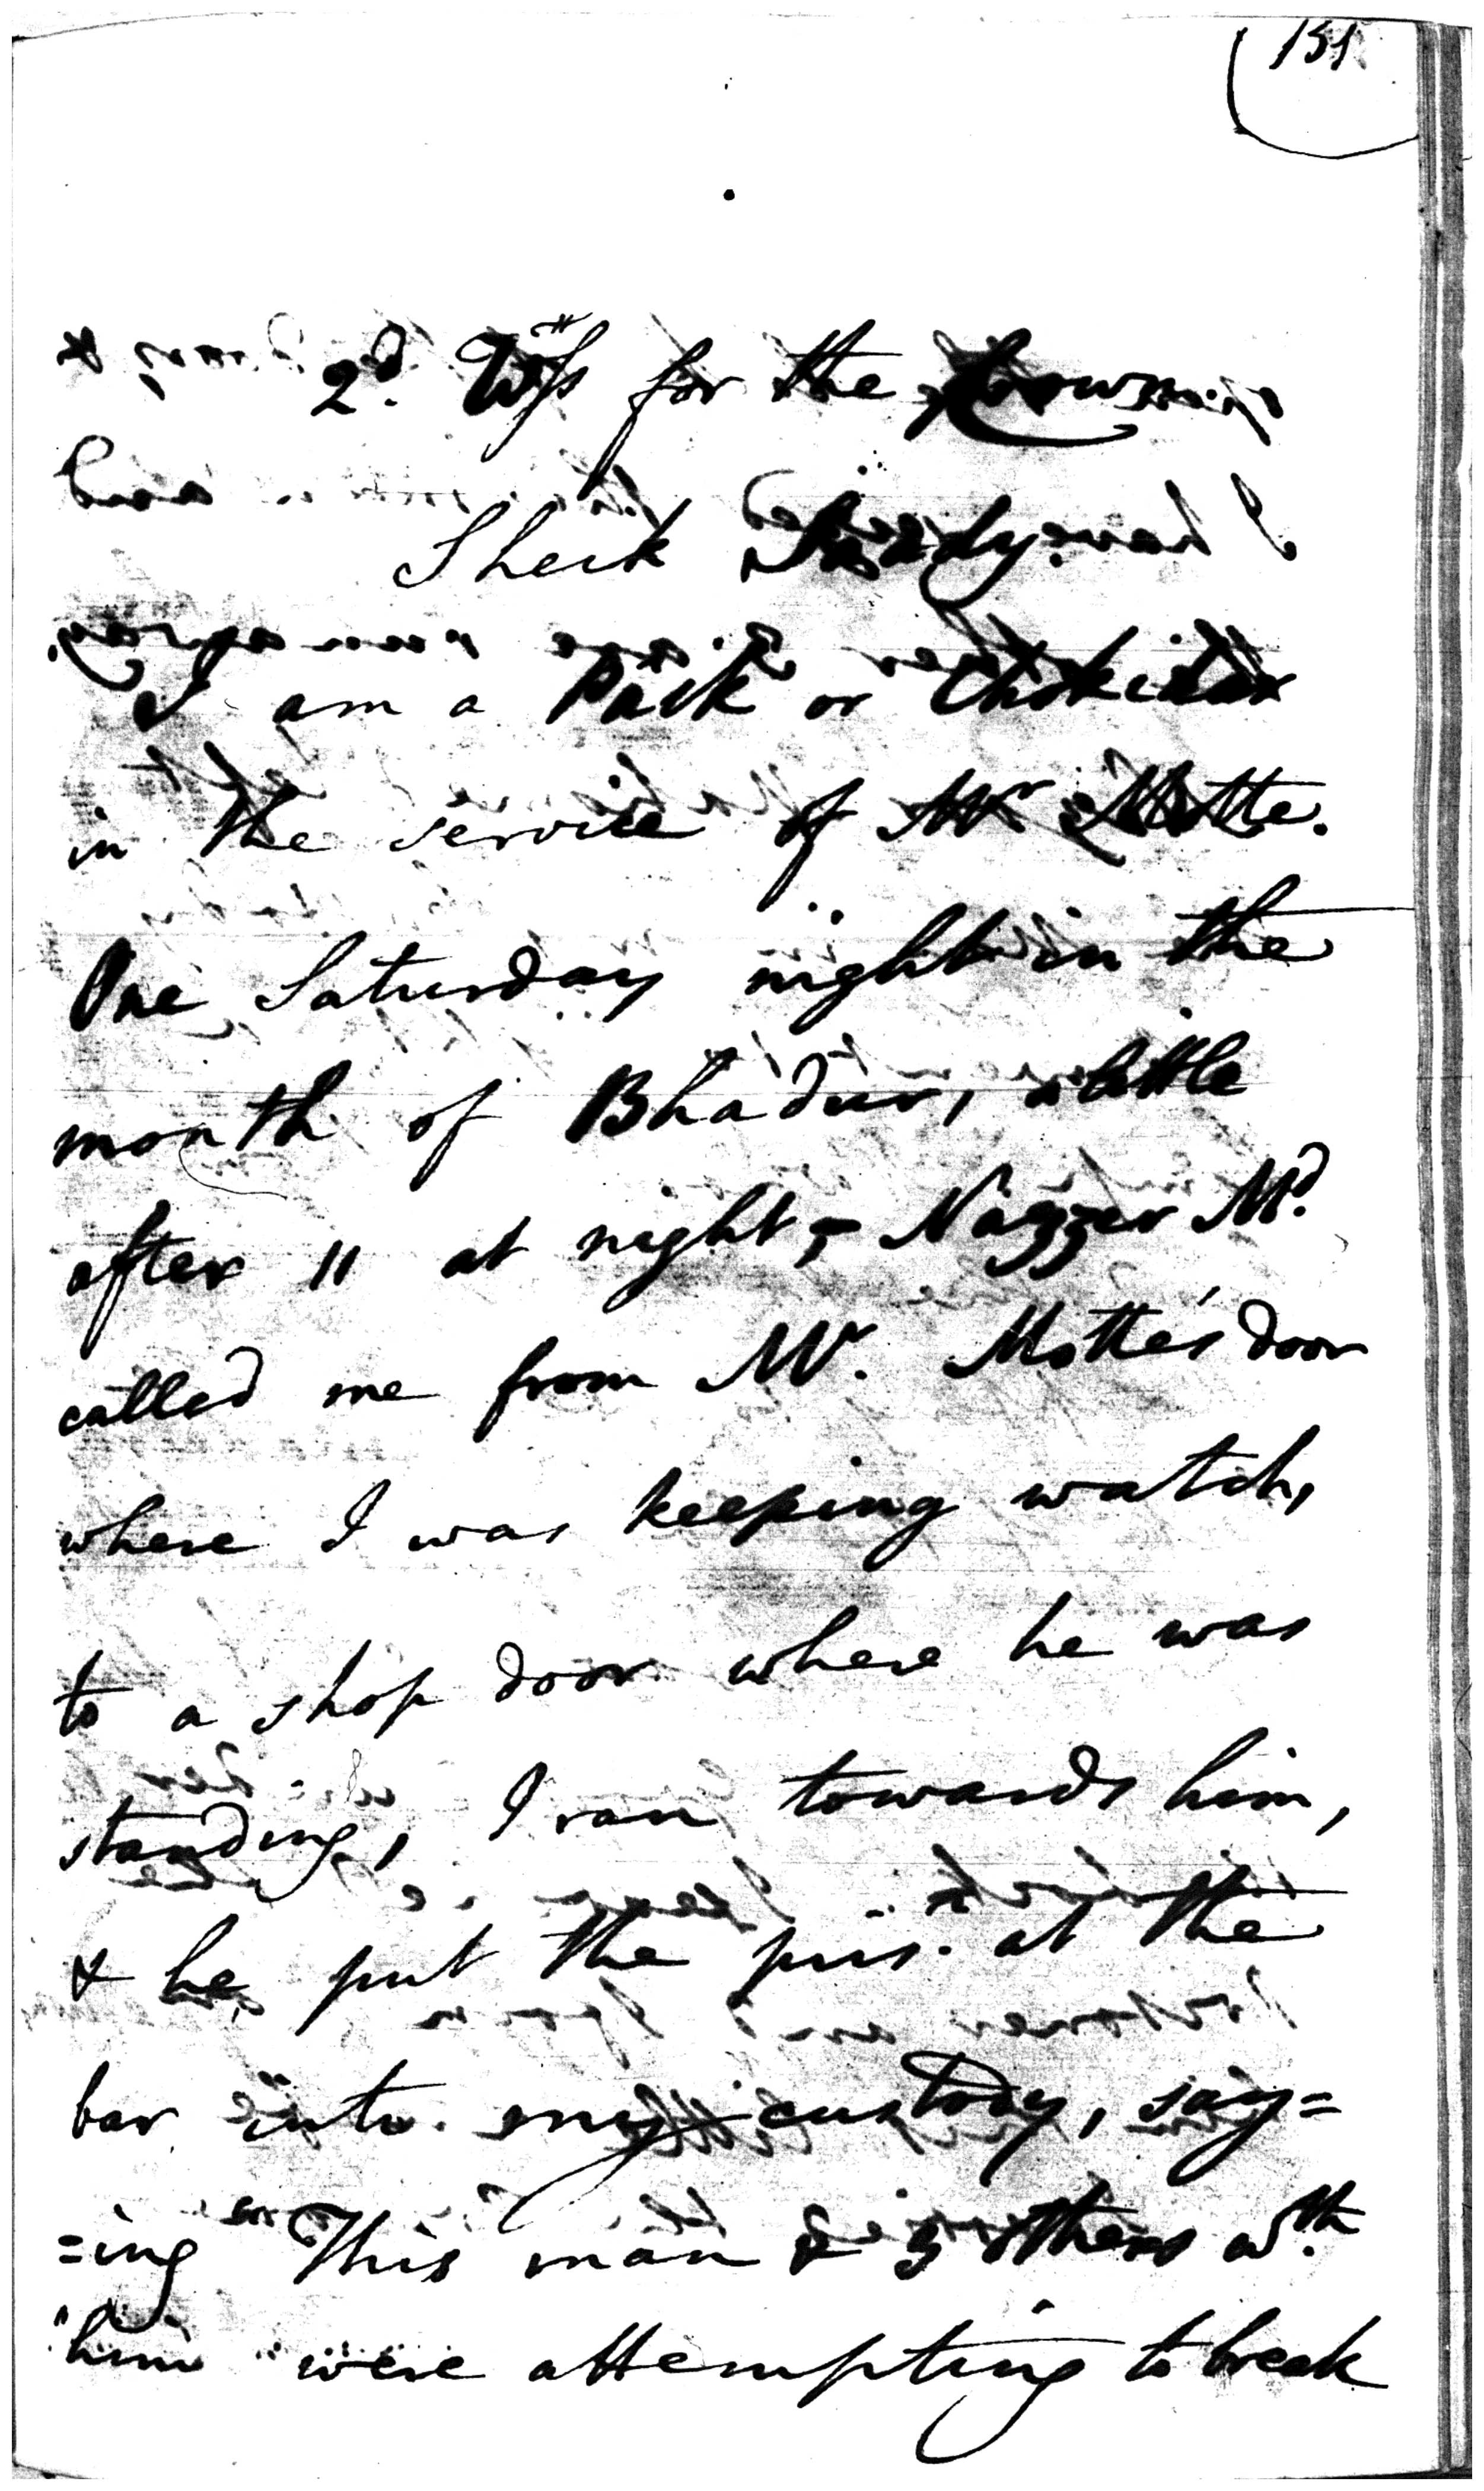 151
2d. Wss for the Crown
Sheik
I am a Paik or Chokidar
in the service of Mr Motte.
One Saturday night in the
month of Bhadur, a little
after 11 at night, Nazzer Md.
called me from Mr. Motte's door
where I was keeping watch,
to a shop door where he was
standing, I ran towards him,
& he put the prisr. at the
bar into my custody, say=
=ing "This man & 3 others wth.
"him were attempting to break